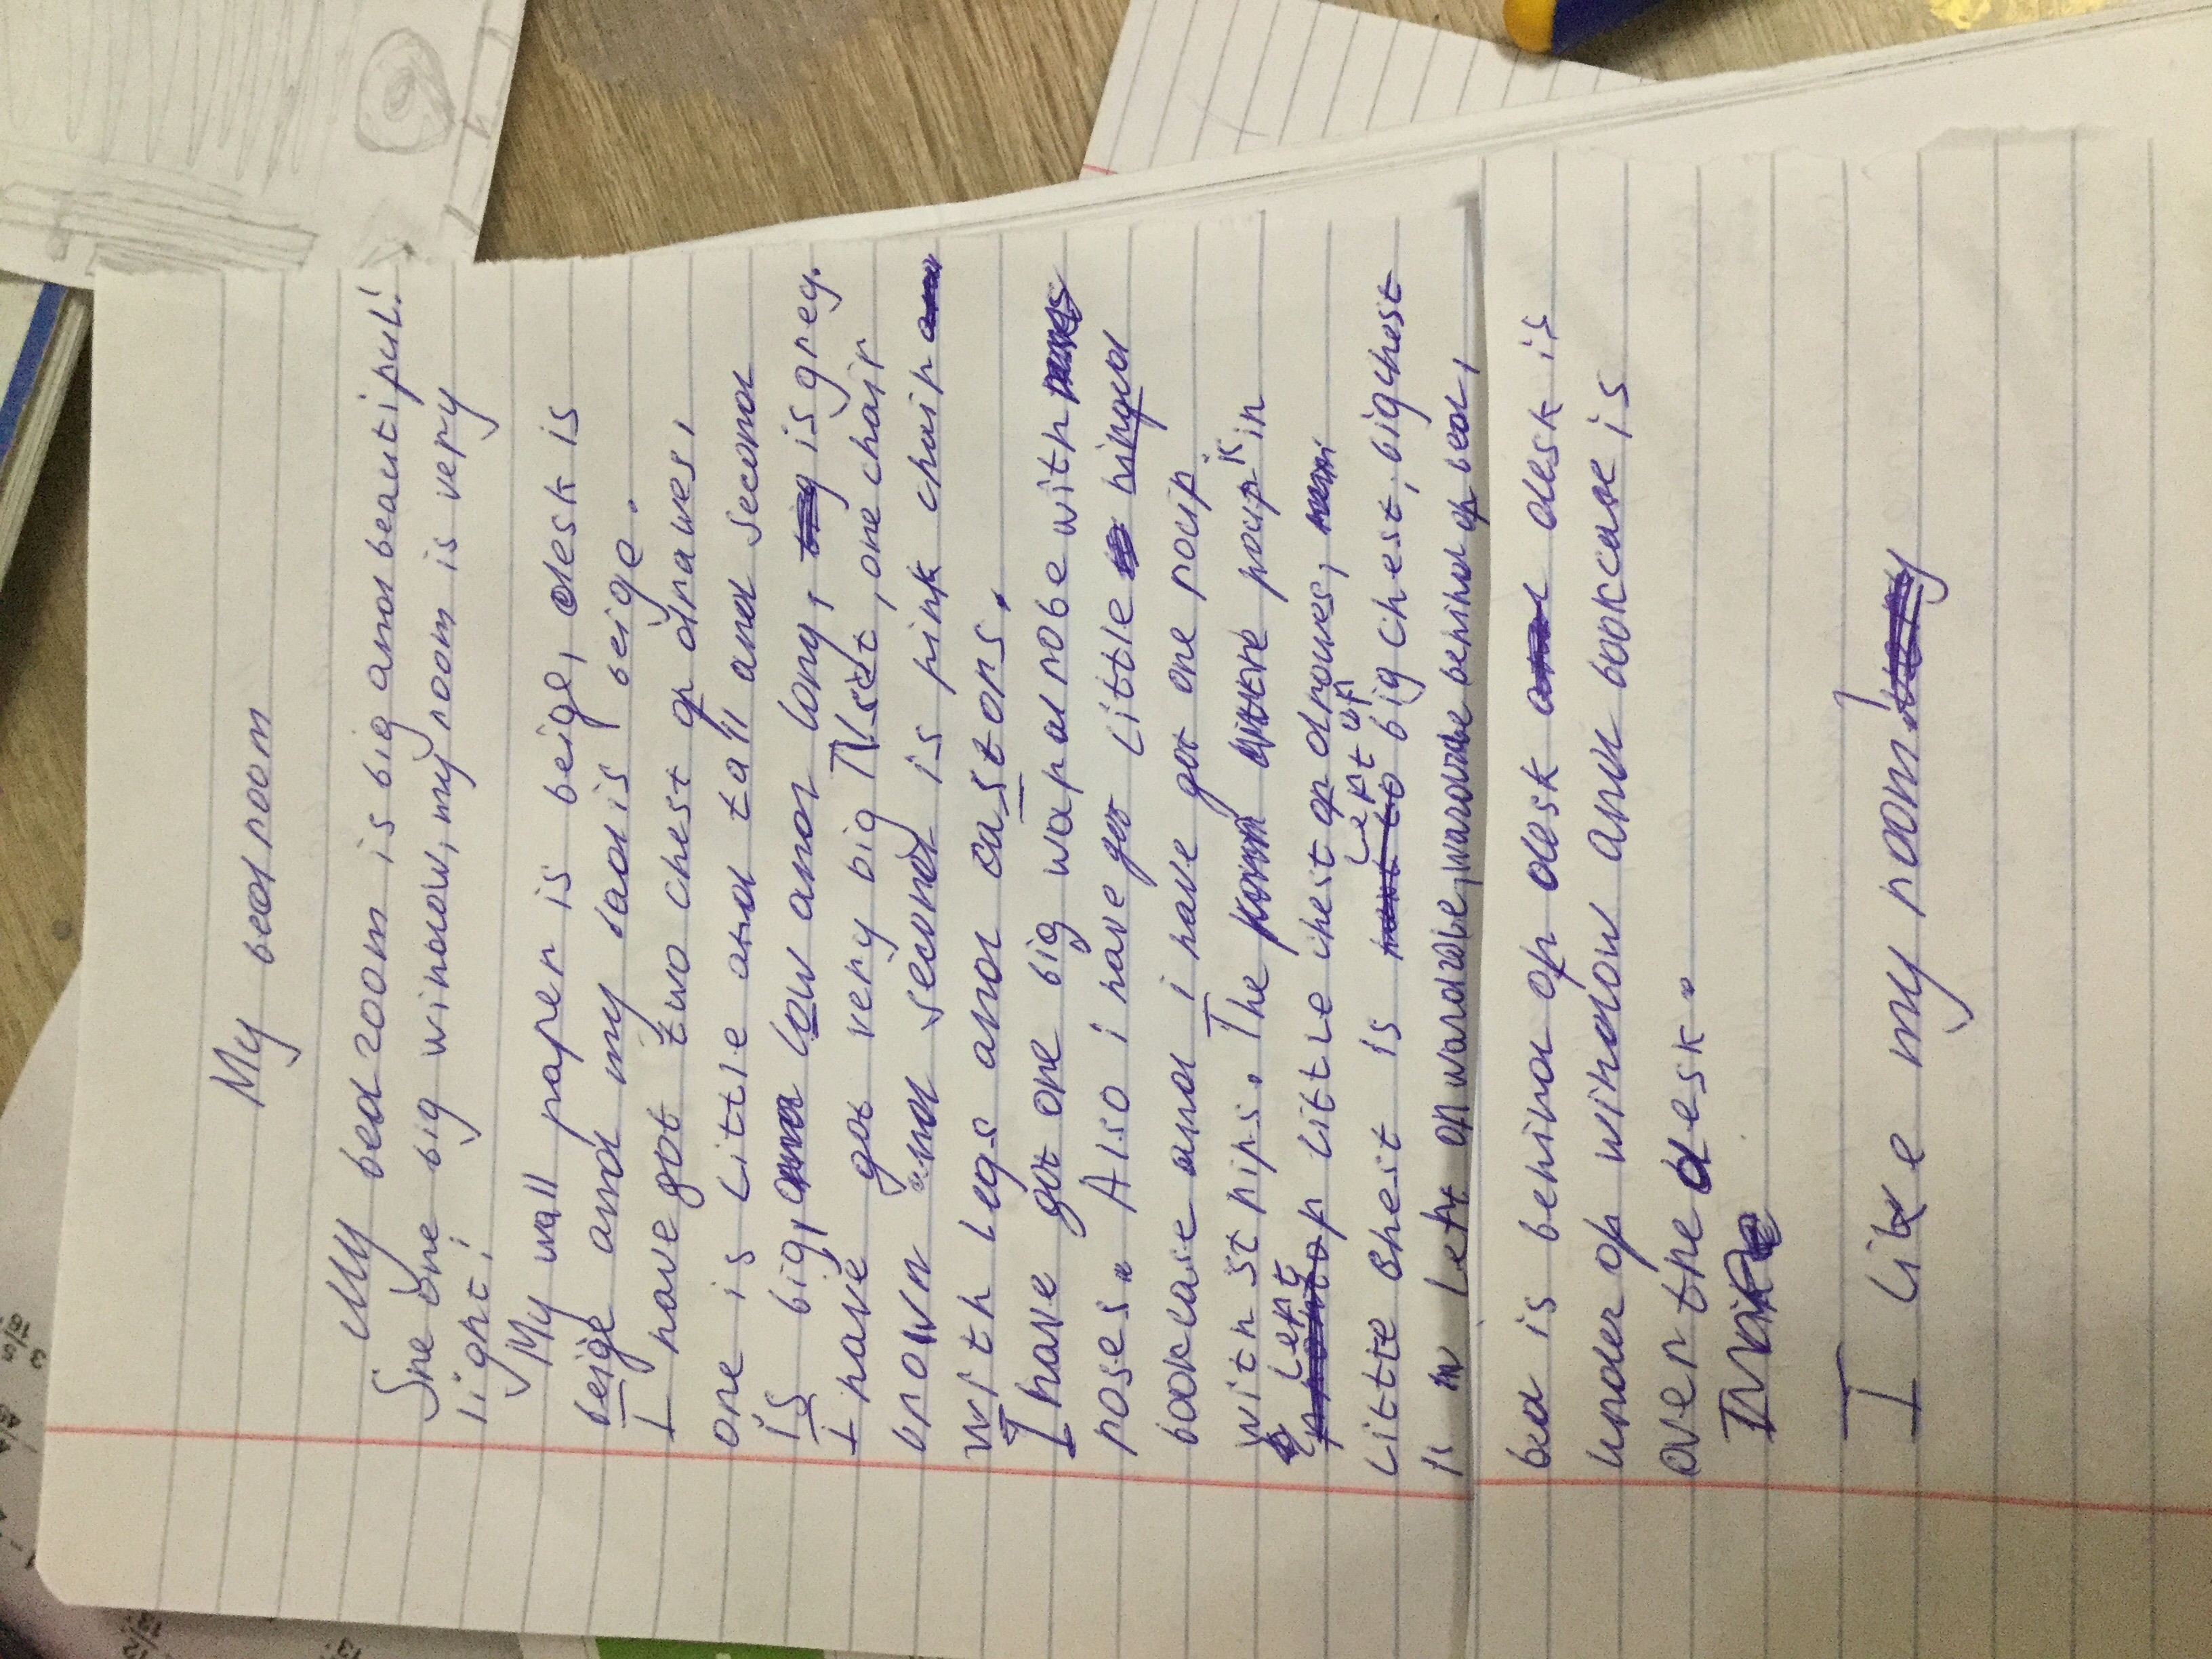 My bedroom
My bedroom is big and beautiful!
She one big window, my room is very
light!
My wall paper is beige, desk is
beige and my bad is beige.
I have got two chest of drawes,
one is little and tall and second
is big, low and long, is grey.
I have got very big TV set, one chair
brown and second is pink chair
with legs and castors.
I have got one big wapdrobe with
roses. Also i have got little
bookcase and i have got one pouf
with strips. The pouf is in
left of little chest of drawes,
little chest is left of big chest, big chest
is in left of wardrobe, wardrobe behind of bed,
bed is behind of desk desk is
under of window and bookcase is
over the desk.
I like my room!